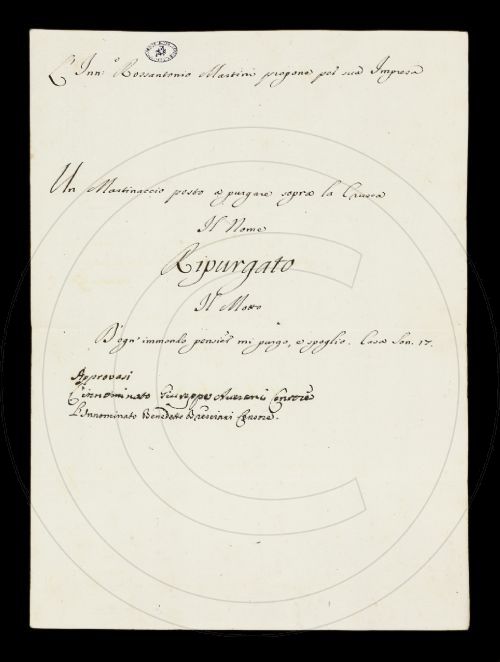 L'Inn.o Rossantonio Martini propone per sua Impresa
Un Martinaccio posto a purgare sopra la Crusca
Il Nome
Ripurgato
Il Motto
D'ogn' immondo pensier mi purgo, e spoglio. Casa Son. 17.
Approvasi
L'innominato Giuseppe Averani Censore
L'Innominato Benedetto Bresciani Censore.